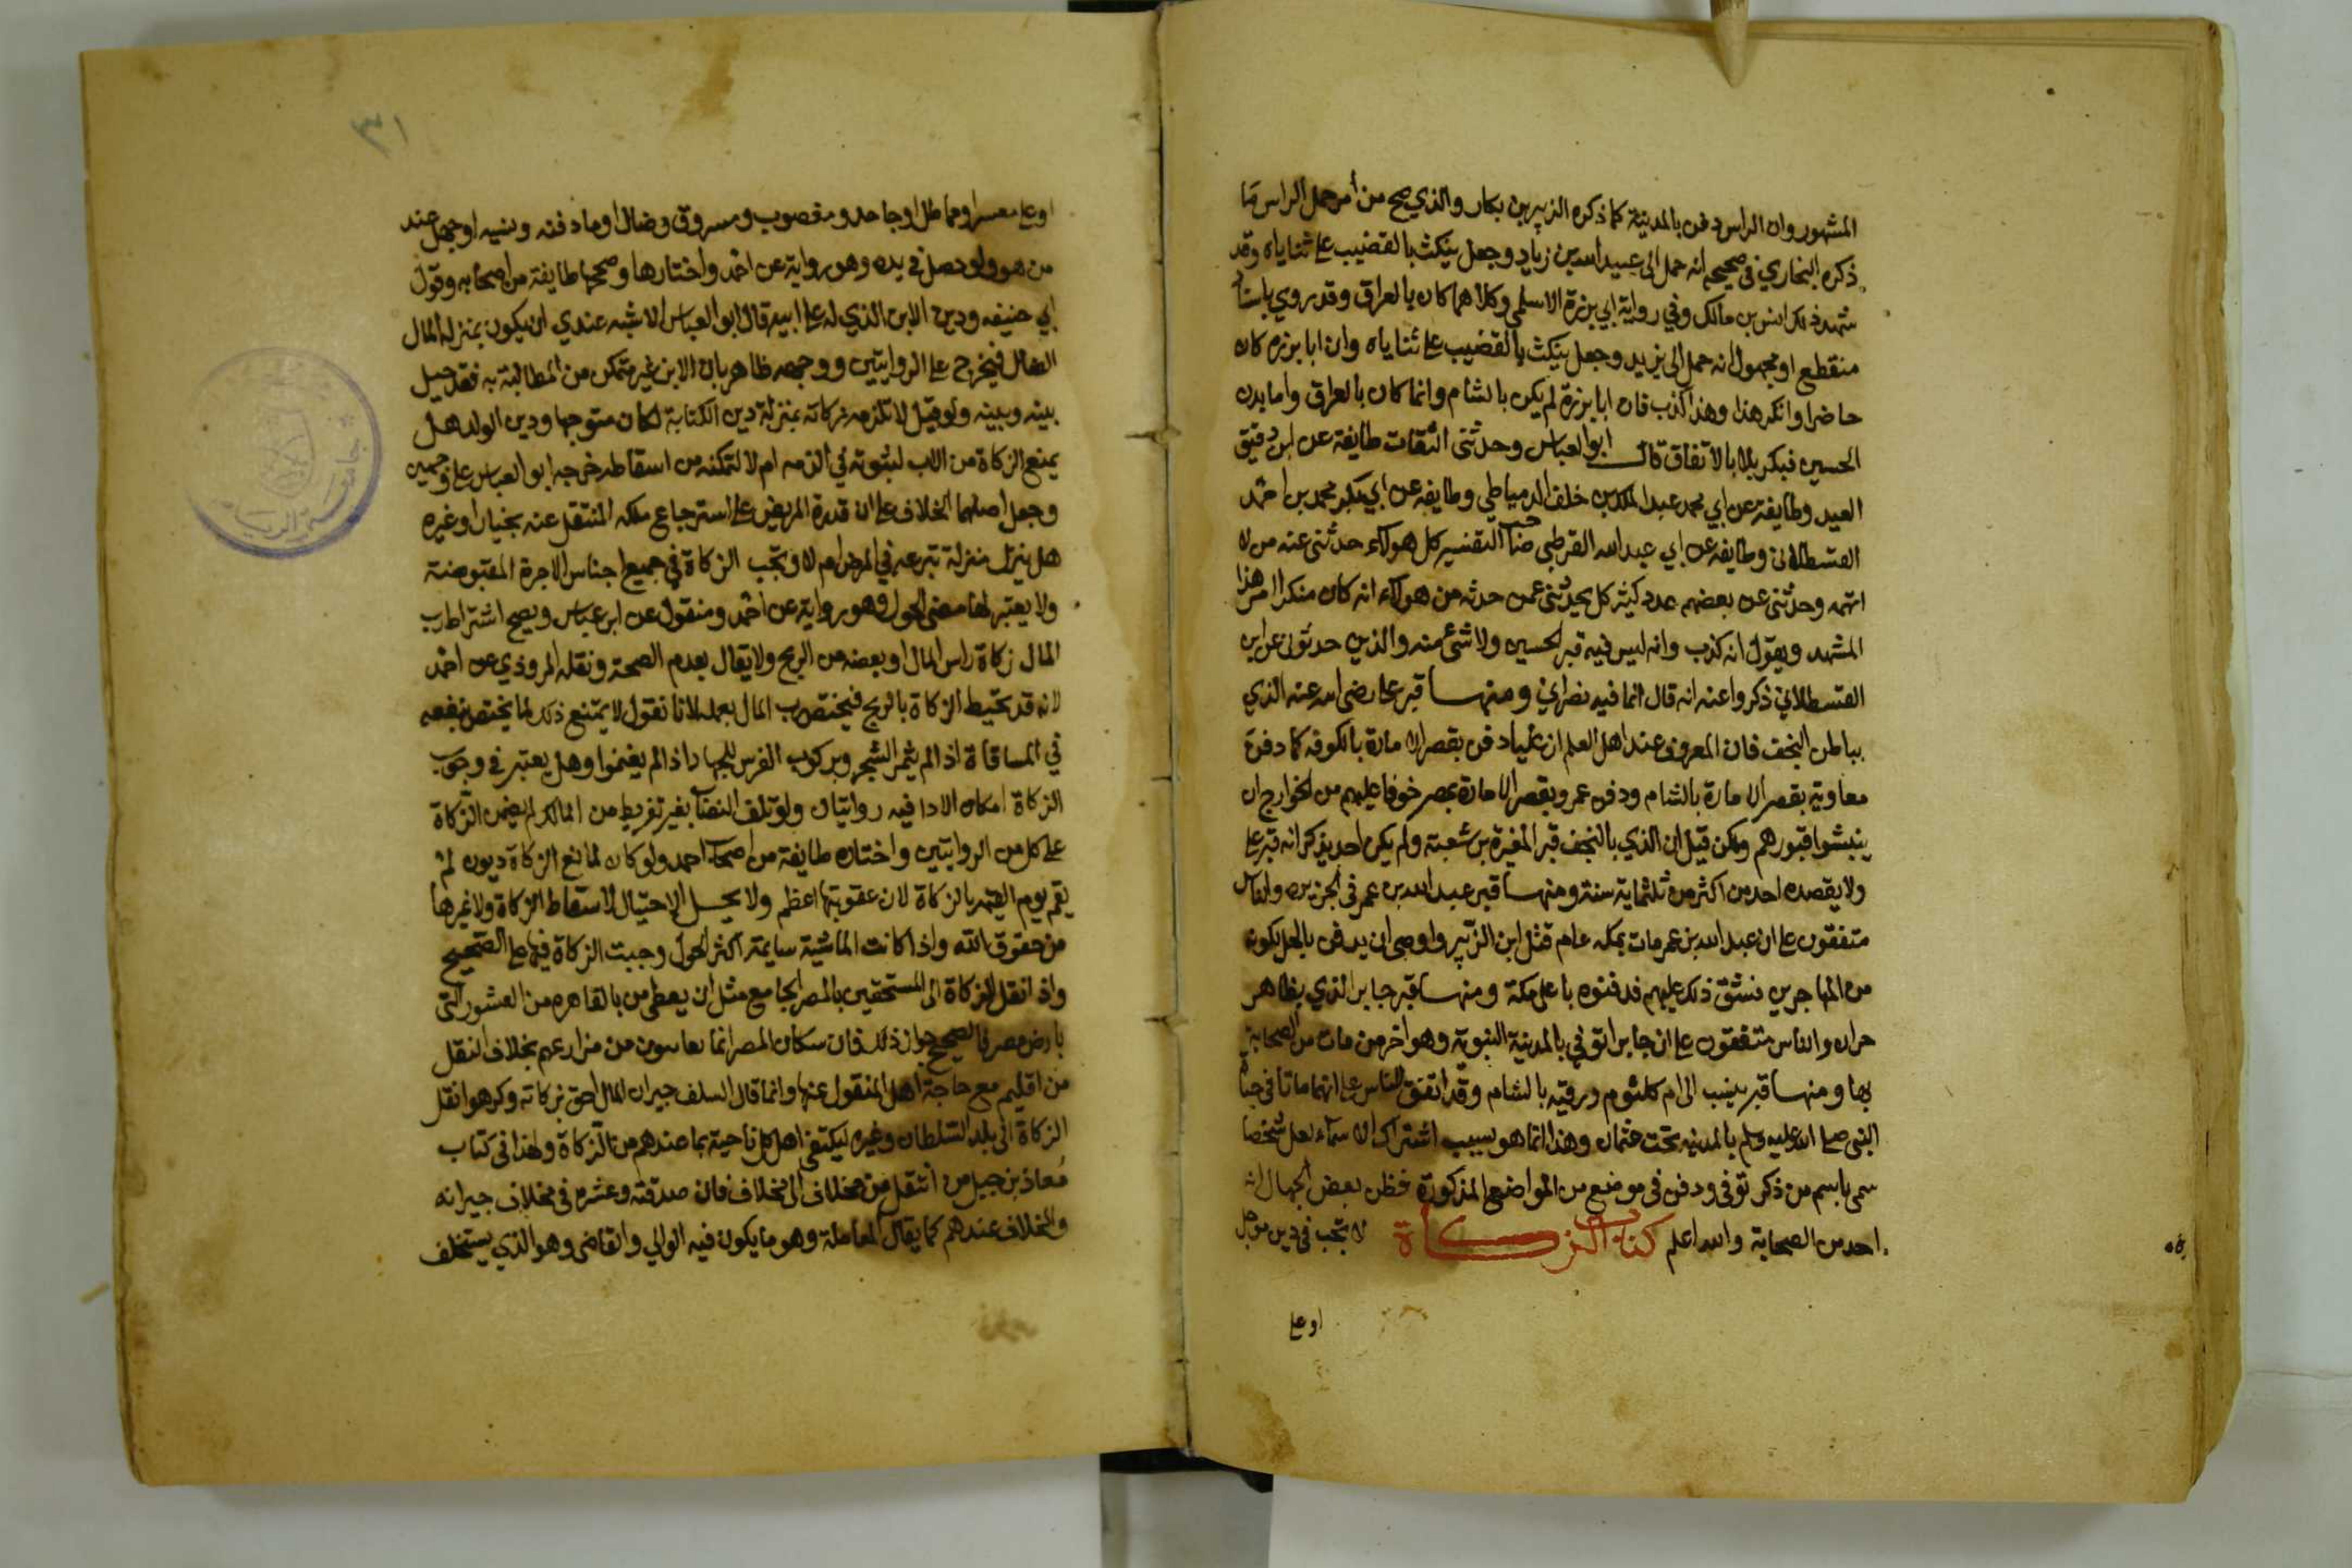 المشهور وان الراس دفن بالمدينة كما ذكره الزبير بن بكار والذي صح من أمر حمل الراس ما
ذكره البخاري في صحيحه انه حمل الى عبيد الله بن زياد وجعل ينكث بالقضيب على ثناياه وقد
شهد ذلك انس بن مالك وفي رواية ابي برزة الاسلمي وكلاهما كان بالعراق وقد روي باسناد
منقطع او مجهول انه حمل الى يزيد وجعل ينكث بالقضيب على ثناياه وان ابا برزه كان
حاضرا وانكر هذا وهذا كذب فان ابا برزة لم يكن بالشام وانما كان بالعراق واما بدن
الحسين فبكربلا بالاتفاق قال ابو العباس وحدثني الثقات طايفة عن ابن دقيق
العيد وطايفة عن ابي محمد عبد الملك بن خلف الدمياطي وطايفه عن ابي بكر محمد بن احمد
القسطلاني وطايفه عن ابي عبد الله القرطبي صاحب التفسير كل هولاء حدثني عنه من لا
اتهمه وحدثني عن بعضهم عدد كثير كل يحدثني عمن حدثه من هولاء انه كان ينكر امر هذا
المشهد ويقول انه كذب وانه ليس فيه قبر الحسين ولا شيء منه والذين حدثوني عن ابن
القسطلاني ذكروا عنه انه قال انما فيه نصراني ومنها قبر علي رضي الله عنه الذي
بباطن النجف فان المعروف عند اهل العلم ان عليا دفن بقصر الامارة بالكوفه كما دفن
معاوية بقصر الامارة بالشام ودفن عمرو بقصر الامارة بمصر خوفا عليهم من الخوارج ان
ينبشوا قبورهم ولكن قيل ان الذي بالنجف قبر المغيرة بن شعبة ولم يكن احد يذكر انه قبر علي
ولا يقصده احد من اكثر من ثلثماية سنة ومنها قبر عبد الله بن عمر في الجزيره والناس
متفقون على ان عبد الله بن عمر مات بمكه عام قتل ابن الزبير واوصى ان يدفن بالحل لكونه
من المهاجرين فشق ذلك عليهم فدفنوه باعلى مكة ومنها قبر جابر الذي بظاهر
حران والناس متفقون على ان جابرا توفي بالمدينة النبوية وهو اخر من مات من الصحابة
بها ومنها قبر ينسب الى ام كلثوم ورقيه بالشام وقد اتفق الناس على انهما ماتا في حياة
النبي صلى الله عليه وسلم بالمدينه تحت عثمان وهذا انما هو بسبب اشتراك الاسماء لعل شخصا
سمي باسم من ذكر توفي ودفن في موضع من المواضع المذكورة فظن بعض الجهال انه
احد من الصحابة والله اعلم كتاب الزكاة لا تجب في دين موجل
او على
٣١
او على معسر او مماطل او جاحد ومغصوب ومسروق وضال وما دفنه ونسيه او جهل عند
من هو ولو حصل في يده وهو رواية عن احمد واختارها وصححها طايفة من اصحابه وقول
ابي حنيفه ودين الابن الذي له على ابيه قال ابو العباس الاشبه عندي ان يكون بمنزلة المال
الضال فيخرج على الروايتين ووجهه ظاهر بان الابن غير متمكن من المطالبة به فقد حيل
بينه وبينه ولو قيل لا تلزمه زكاته بمنزلة دين الكتابة لكان متوجها ودين الولد هل
يمنع الزكاة من الاب لثبوته في الذمه ام لا لتمكنه من اسقاطه خرجه ابو العباس على وجهين
وجعل اصلهما الخلاف على ان قدرة المريض على استرجاع ملكه المنتقل عنه بخيار او غيره
هل ينزل منزلة تبرعه في المرض ام لا وتجب الزكاة في جميع اجناس الاجرة المقبوضة
ولا يعتبر لها مضي الحول وهو رواية عن احمد ومنقول عن ابن عباس ويصح اشتراط رب
المال زكاة راس المال او بعضه من الربح ولا يقال بعدم الصحة ونقله المروذي عن احمد
لانه قد تحيط الزكاة بالربح فيختص رب المال بعمله لانا نقول لا يمتنع ذلك لما يختص بنفعه
في المساقاة اذا لم يثمر الشجر وبركوب الفرس للجهاد اذا لم يغنموا وهل يعتبر في وجوب
الزكاة امكان الادا فيه روايتان ولو تلف النصاب بغير تفريط من المالك لم يضمن الزكاة
على كل من الروايتين واختاره طايفة من اصحاب احمد ولو كان لمانع الزكاة ديون لم
يقم يوم القيمه بالزكاة لان عقوبتها اعظم ولا يحل الاحتيال لاسقاط الزكاة ولا غيرها
من حقوق الله واذا كانت الماشية سايمة اكثر الحول وجبت الزكاة فيها على الصحيح
واذا نقل الزكاة الى المستحقين بالمصر الجامع مثل ان يعطي من بالقاهره من العشور التي
بارض مصر فالصحيح جواز ذلك فان سكان المصر انما من مزارعهم بخلاف النقل
من اقليم مع حاجة اهل المنقول عنها وانما قال السلف جيران المال احق بزكاته وكرهوا نقل
الزكاة الى بلد السلطان وغيره ليكتفي اهل كل ناحية بما عندهم من الزكاة ولهذا في كتاب
معاذ بن جبل من انتقل من مخلاف الى مخلاف فان صدقته وعشره في مخلاف جيرانه
والمخلاف عندهم كما يقال المعاملة وهو ما يكون فيه الوالي والقاضي وهو الذي يستخلف